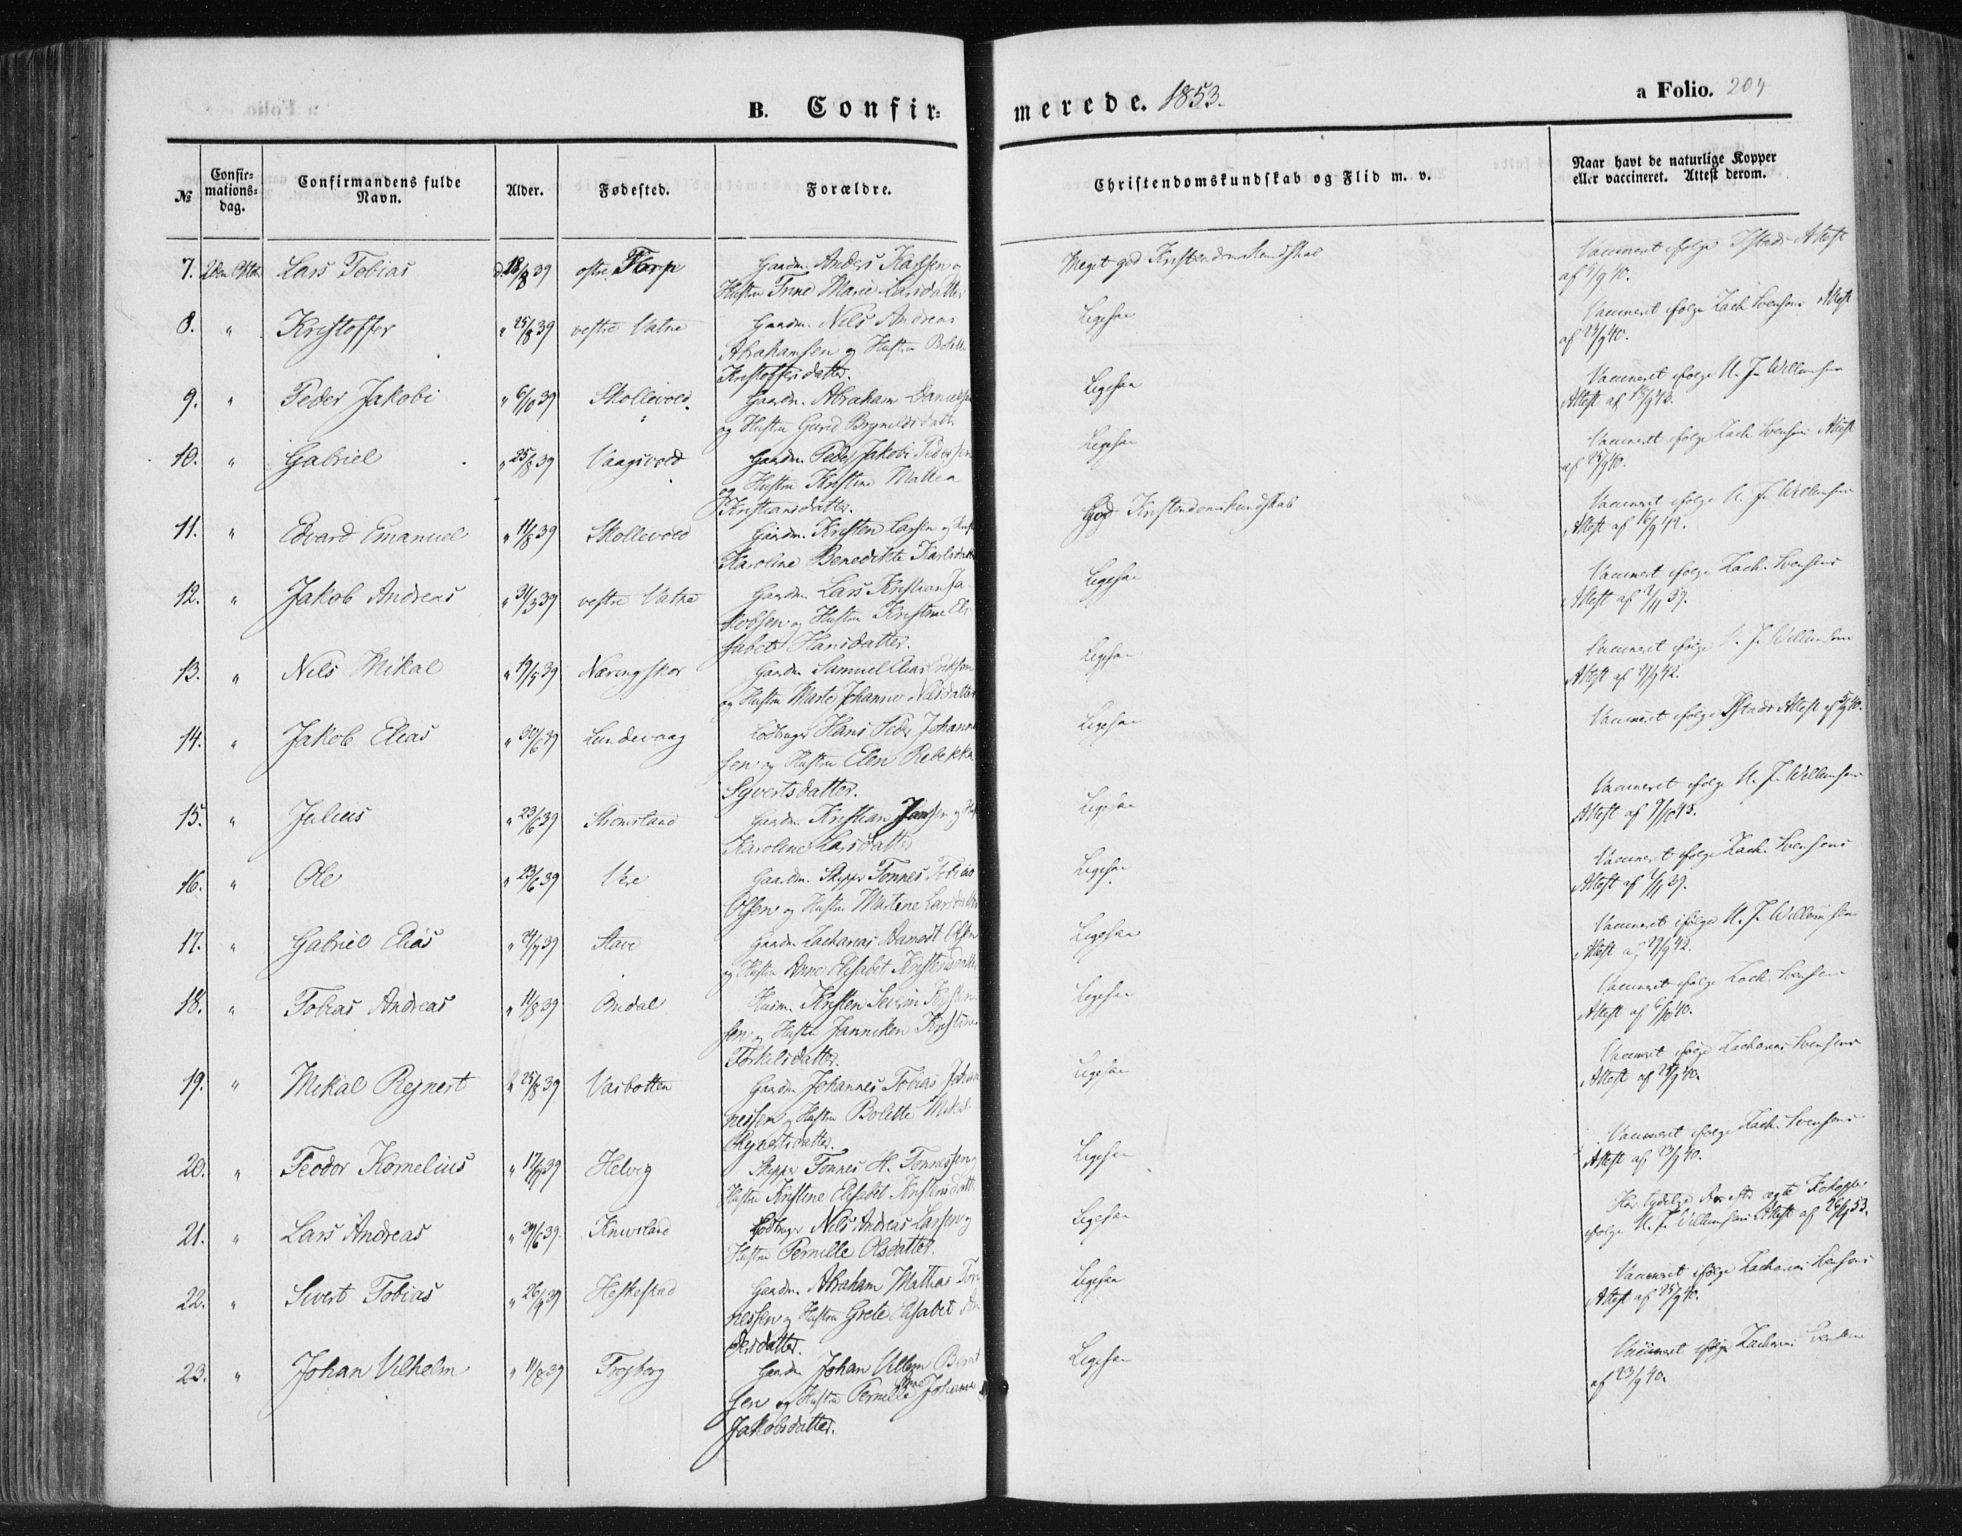 B. Confir-
merede. 1853.
a Folio. 204
№
Confir-
mations-
dag.
Confirmandens fulde
Navn.
Alder.
Fødested.
Forældre.
Christendomskundskab og Flid m. v.
Naar havt de naturlige Kopper
eller vaccineret. Attest derom.
7. Lars Tobias 18/8 39 østre Torp Gaardm. Anders Larsen og
Hustru Trine Marie Larsdatter
Meget god Kristendomskundskab
Vaccineret ifølge Attest
8. " Kristoffer " 25/8 39 vestre Vatne Gaardm. Nils Andreas
Abrahamsen og Hustru Bolette
Kristoffersdatter.
Ligesaa
Vaccineret ifølge Zach. Svensens Attest
af 23/9 40.
9. " Peder Jakobi " 6/10 39 Skollevold Gaardm. Abraham Danielsen
og Hustru Gurid Brynildsdatter
Ligesaa
Vaccineret ifølge N. J. Willemsens
Attest af
10. " Gabriel " 25/8 39 Vaagsvold Gaardm. Peder Jakobi Pedersen
og Hustru Kristine Mattea
Kristiansdatter.
Ligesaa
Vaccineret ifølge Zach. Svensens Attest
11. " Edvard Emanuel " 11/8 39 Skollevold Gaardm. Kristen Larsen og Hustru
Karoline Benedikte Karlsdatter
God Kristendomskundskab
Vaccineret ifølge N. J. Willemsens
Attest af 16/9 42.
12. " Jakob Andreas " 31/3 39 vestre Vatne Gaardm. Lars Kristian Ja-
kobsen og Hustru Kristine Eli-
sabet Hansdatter.
Ligesaa
Vaccineret ifølge Zach. Svensens
Attest af 39.
13. " Nils Mikal " 19/5 39 Næringskor Gaardm. Samuel Elias Eriksen
og Hustru Marte Johanne Nilsdatter
Ligesaa
Vaccineret ifølge N. J. Willemsens
Attest af 42.
14. " Jakob Elias " 30/6 39 Lundevaag Lodtager Hans Peder Johanne-
sen og Hustru Elen Rebekka
Syvertsdatter.
Ligesaa
Vaccineret ifølge Attest af 40.
15. " Julius " 23/6 39 Stromsland Gaardm. Kristian Jansen og Hustru
Karoline Larsdatter
Ligesaa
Vaccineret ifølge N. J. Willemsens
Attest af
16. " Ole " 23/6 39 Vere Gaardm. Skipper Tønnes Tobias
Olsen og Hustru Martine Larsdatter
Ligesaa
Vaccineret ifølge Zach. Svensens
Attest af 39.
17. " Gabriel Elias 39 Stave Gaardm. Zacharias Berndt Olsen
og Hustru Anne Elisabet Kristensdatter
Ligesaa
Vaccineret ifølge N. J. Willemsens
Attest af 42.
18. " Tobias Andreas " 11/8 39 Omdal Husm. Kristen Severin Kristen-
sen og Hustru Janniken Kristine
Torkelsdatter.
Ligesaa
Vaccineret ifølge Zach. Svensens
Attest af 40.
19. " Mikal Rejnert " 25/8 39 Vasbotten Gaardm. Johannes Tobias Johan-
nessen og Hustru Bolette Mikal
Rejnertsdatter.
Ligesaa
Vaccineret ifølge Zacharias Svensens
Attest af 40.
20. " Teodor Kornelius 39 Helvig Skipper Tønnes H. Tønnessen og
Hustru Kristine Elisabet Kristensdatter
Ligesaa
Vaccineret ifølge Zach. Svensens
Attest af 23/9 40.
21. " Lars Andreas 39 Knivsland Lodtager Nils Andreas Larsen og
Hustru Pernille Olsdatter.
Ligesaa
Har tydelige af ægte Kokopper
ifølge N. J. Willemsens Attest af 26/9 53.
22. " Sivert Tobias 39 Heskestad Gaardm. Abraham Mathias Tøn-
nessen og Hustru Grete Elisabet An-
dersdatter.
Ligesaa
Vaccineret ifølge Zacharias Svensens
Attest af 25/9 40.
23. " Johan Vilhelm " 11/8 39 Trojborg Gaardm. Johan Villum Bernt-
sen og Hustru Pernille Johanne
Jakobsdatter.
Ligesaa
Vaccineret ifølge Zacharias Svensens
af 23/9 40.